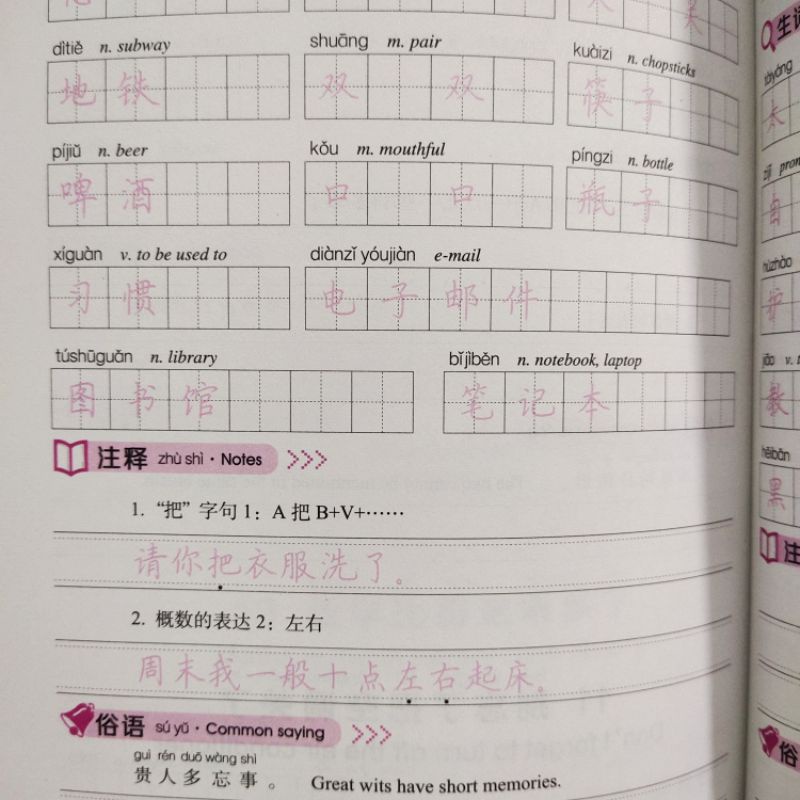 dìtiě n. subway shuāng m. pair kuàizi n. chopsticks
地铁 双 双 筷子
píjiǔ n. beer kǒu m. mouthful píngzi n. bottle
啤酒 口 口 瓶子
xíguàn v. to be used to diànzǐ yóujiàn e-mail
习惯 电子邮件
túshūguǎn n. library bǐjìběn n. notebook, laptop
图书馆 笔记本
注释 zhù shì · Notes
1. “把”字句 1：A 把 B+V+……
请你把衣服洗了。
2. 概数的表达 2：左右
周末我一般十点左右起床。
俗语 sú yǔ · Common saying
guì rén duō wàng shì
贵人多忘事。 Great wits have short memories.
生词
tàiyáng
太
zìjǐ pron
自
hùzhào
护
jiāo v. t
教
hēibǎn
黑
注
俗